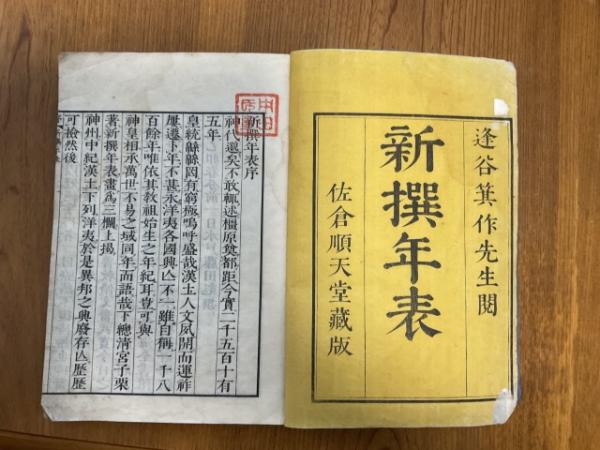 逢谷箕作先生閲
新撰年表
佐倉順天堂藏版
新撰年表序
神代邈矣不敢輒述橿原奠都距今實二千五百十有
五年
皇統緜緜罔有窮極嗚呼盛哉漢土人文夙開而運祚
屢遷卜年不甚永洋夷各國興亾不一雖自稱一千八
百餘年唯依其敎祖始生之年紀耳豈可與
神皇相承萬世不易之域同年而語哉下總清宮子栗
著新撰年表畫爲三欄上揭
神州中紀漢土下列洋夷於是異邦之興廢存亾歷歷
可撿然後